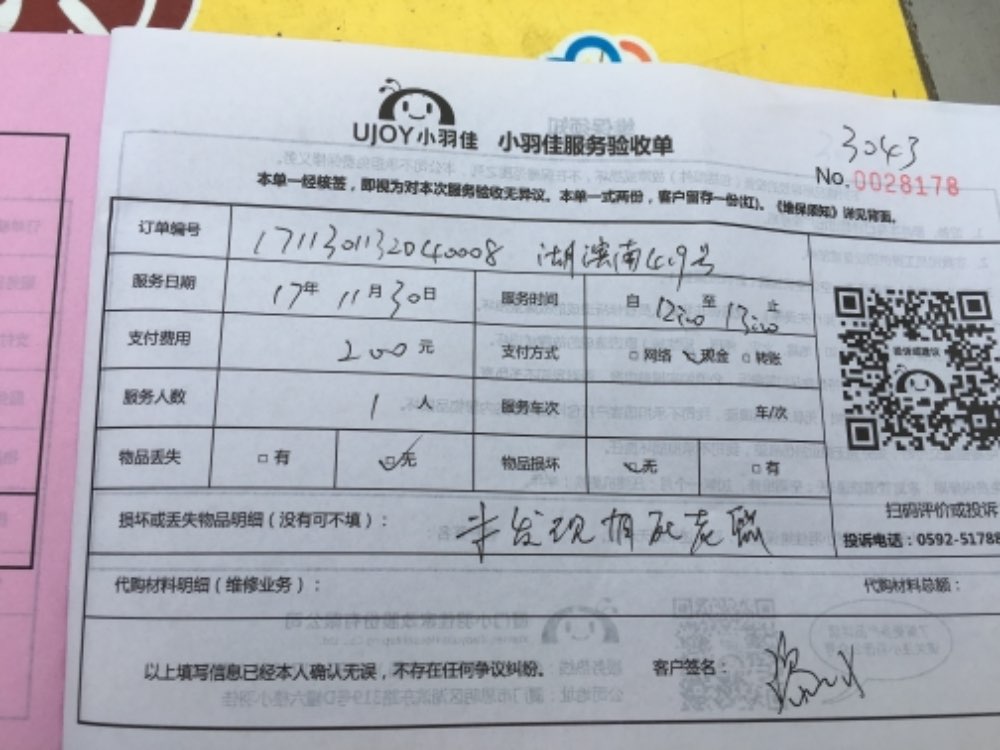 UJOY小羽佳 小羽佳服务验收单
3043
No.0028178
本单一经核签，即视为对本次服务验收无异议。本单一式两份，客户留存一份(红)。《维保须知》详见背面。
订单编号 1711301132040008 湖滨南419号
服务日期 17年 11月30日 服务时间 自 12:00 至 13:00 止
支付费用 200元 支付方式 网络 现金 转账
服务人数 1 人 服务车次 车/次
物品丢失 有 无 物品损坏 无 有
扫码评价或投诉
损坏或丢失物品明细（没有可不填）： 未发现有死老鼠
投诉电话：0592-51788
代购材料明细（维修业务）： 代购材料总额：
以上填写信息已经本人确认无误，不存在任何争议纠纷。 客户签名：